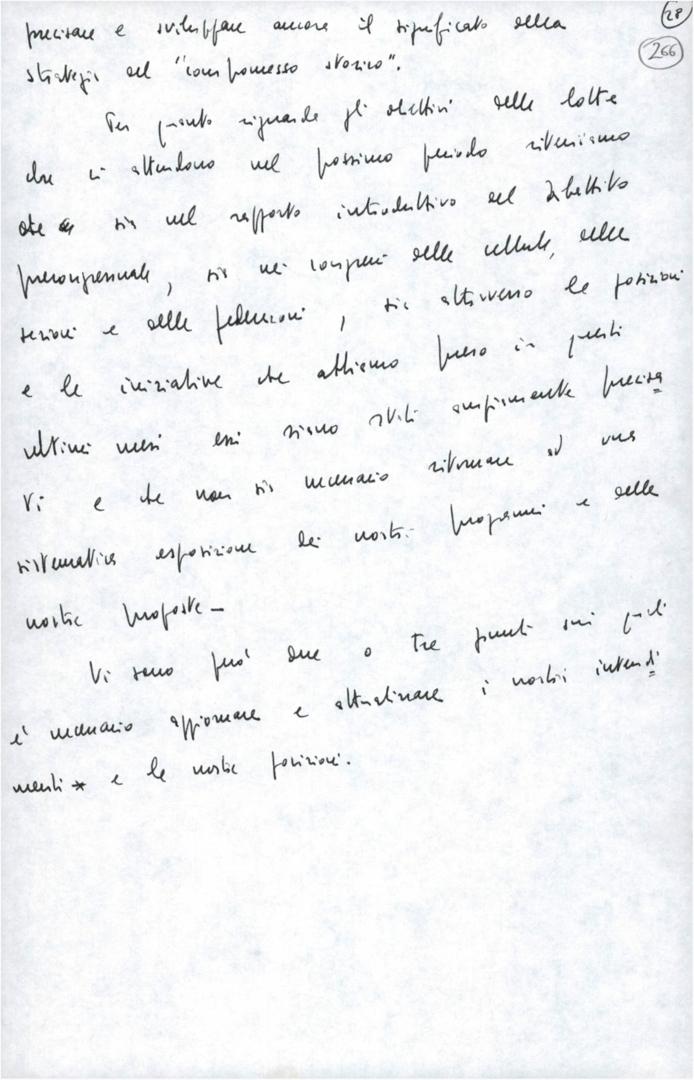 28
266
precisare e sviluppare ancora il significato della
strategia del "compromesso storico".
Per quanto riguarda gli obiettivi delle lotte
che ci attendono nel prossimo periodo riteniamo
che sia nel rapporto introduttivo del dibattito
precongressuale, sia nei congressi delle cellule, delle
sezioni e delle federazioni, sia attraverso le posizioni
e le iniziative che abbiamo preso in questi
ultimi mesi essi siano stati ampiamente precisa
ti e che non sia necessario ritornare ad una
sistematica esposizione dei nostri programmi e delle
nostre proposte –
Vi sono però due o tre punti sui quali
è necessario aggiornare e attualizzare i nostri intendi
menti * e le nostre posizioni.